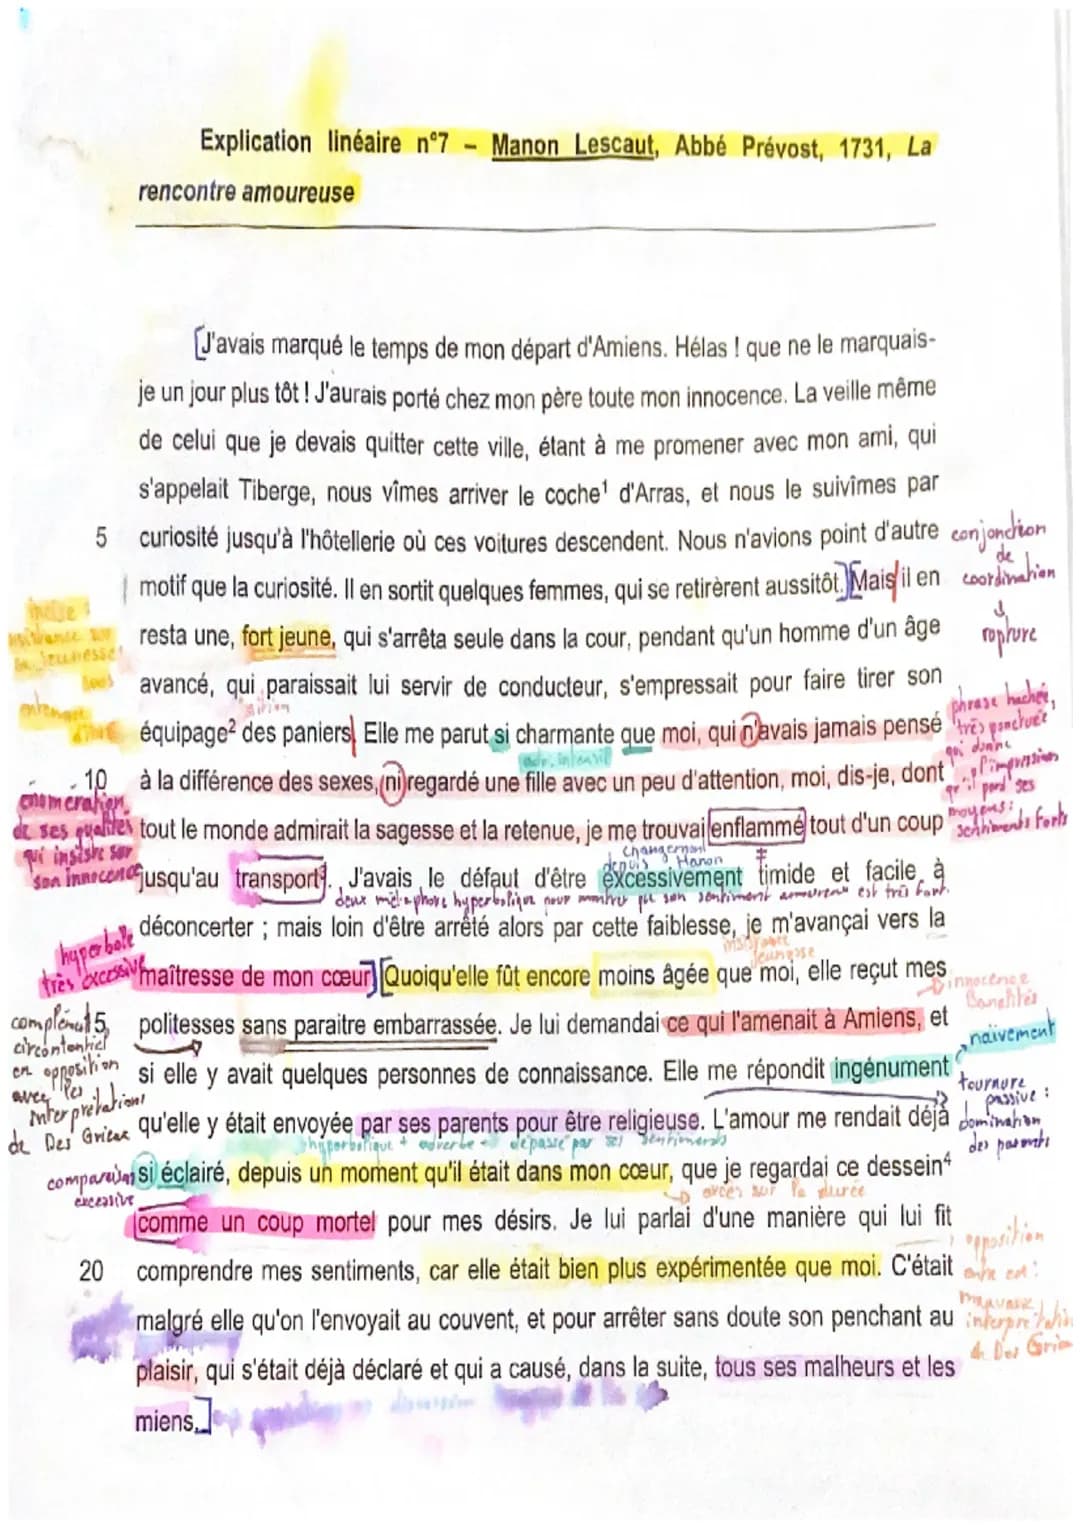 Explication linéaire n°7 – Manon Lescaut, Abbé Prévost, 1731, La
rencontre amoureuse
[J'avais marqué le temps de mon départ d'Amiens. Hélas ! que ne le marquais-
je un jour plus tôt ! J'aurais porté chez mon père toute mon innocence. La veille même
de celui que je devais quitter cette ville, étant à me promener avec mon ami, qui
s'appelait Tiberge, nous vîmes arriver le coche¹ d'Arras, et nous le suivîmes par
5 curiosité jusqu'à l'hôtellerie où ces voitures descendent. Nous n'avions point d'autre
conjonction
de
coordination
↓
rupture
motif que la curiosité. Il en sortit quelques femmes, qui se retirèrent aussitôt.][Mais il en
resta une, fort jeune, qui s'arrêta seule dans la cour, pendant qu'un homme d'un âge
la jeunesse
avancé, qui paraissait lui servir de conducteur, s'empressait pour faire tirer son
équipage² des paniers. Elle me parut si charmante que moi, qui n'avais jamais pensé
adv. intensif
phrase hachée,
très ponctuée,
qui donne
l'impression
qu'il perd ses
moyens :
sentiments forts
10 à la différence des sexes, ni regardé une fille avec un peu d'attention, moi, dis-je, dont
énumération
de ses qualités
qui insiste sur
son innocence
tout le monde admirait la sagesse et la retenue, je me trouvai enflammé tout d'un coup
changement
depuis Manon
jusqu'au transport³. J'avais le défaut d'être excessivement timide et facile à
deux métaphore hyperbolique pour montrer que son sentiment amoureux est très fort.
déconcerter ; mais loin d'être arrêté alors par cette faiblesse, je m'avançai vers la
hyperbole
très excessive
maîtresse de mon cœur.][Quoiqu'elle fût encore moins âgée que moi, elle reçut mes
jeunesse
innocence
Banalités
15 politesses sans paraitre embarrassée. Je lui demandai ce qui l'amenait à Amiens, et
complément
circonstanciel
en opposition
avec les
interprétations
de Des Grieux
naïvement
si elle y avait quelques personnes de connaissance. Elle me répondit ingénument
tournure
passive :
domination
des parents
qu'elle y était envoyée par ses parents pour être religieuse. L'amour me rendait déjà
hyperbolique + adverbe → dépassé par ses sentiments
si éclairé, depuis un moment qu'il était dans mon cœur, que je regardai ce dessein⁴
comparaison
excessive
excès sur la durée
comme un coup mortel pour mes désirs. Je lui parlai d'une manière qui lui fit
20 comprendre mes sentiments, car elle était bien plus expérimentée que moi. C'était
opposition
mauvaise
interprétation
de Des Grieux
malgré elle qu'on l'envoyait au couvent, et pour arrêter sans doute son penchant au
plaisir, qui s'était déjà déclaré et qui a causé, dans la suite, tous ses malheurs et les
miens.]